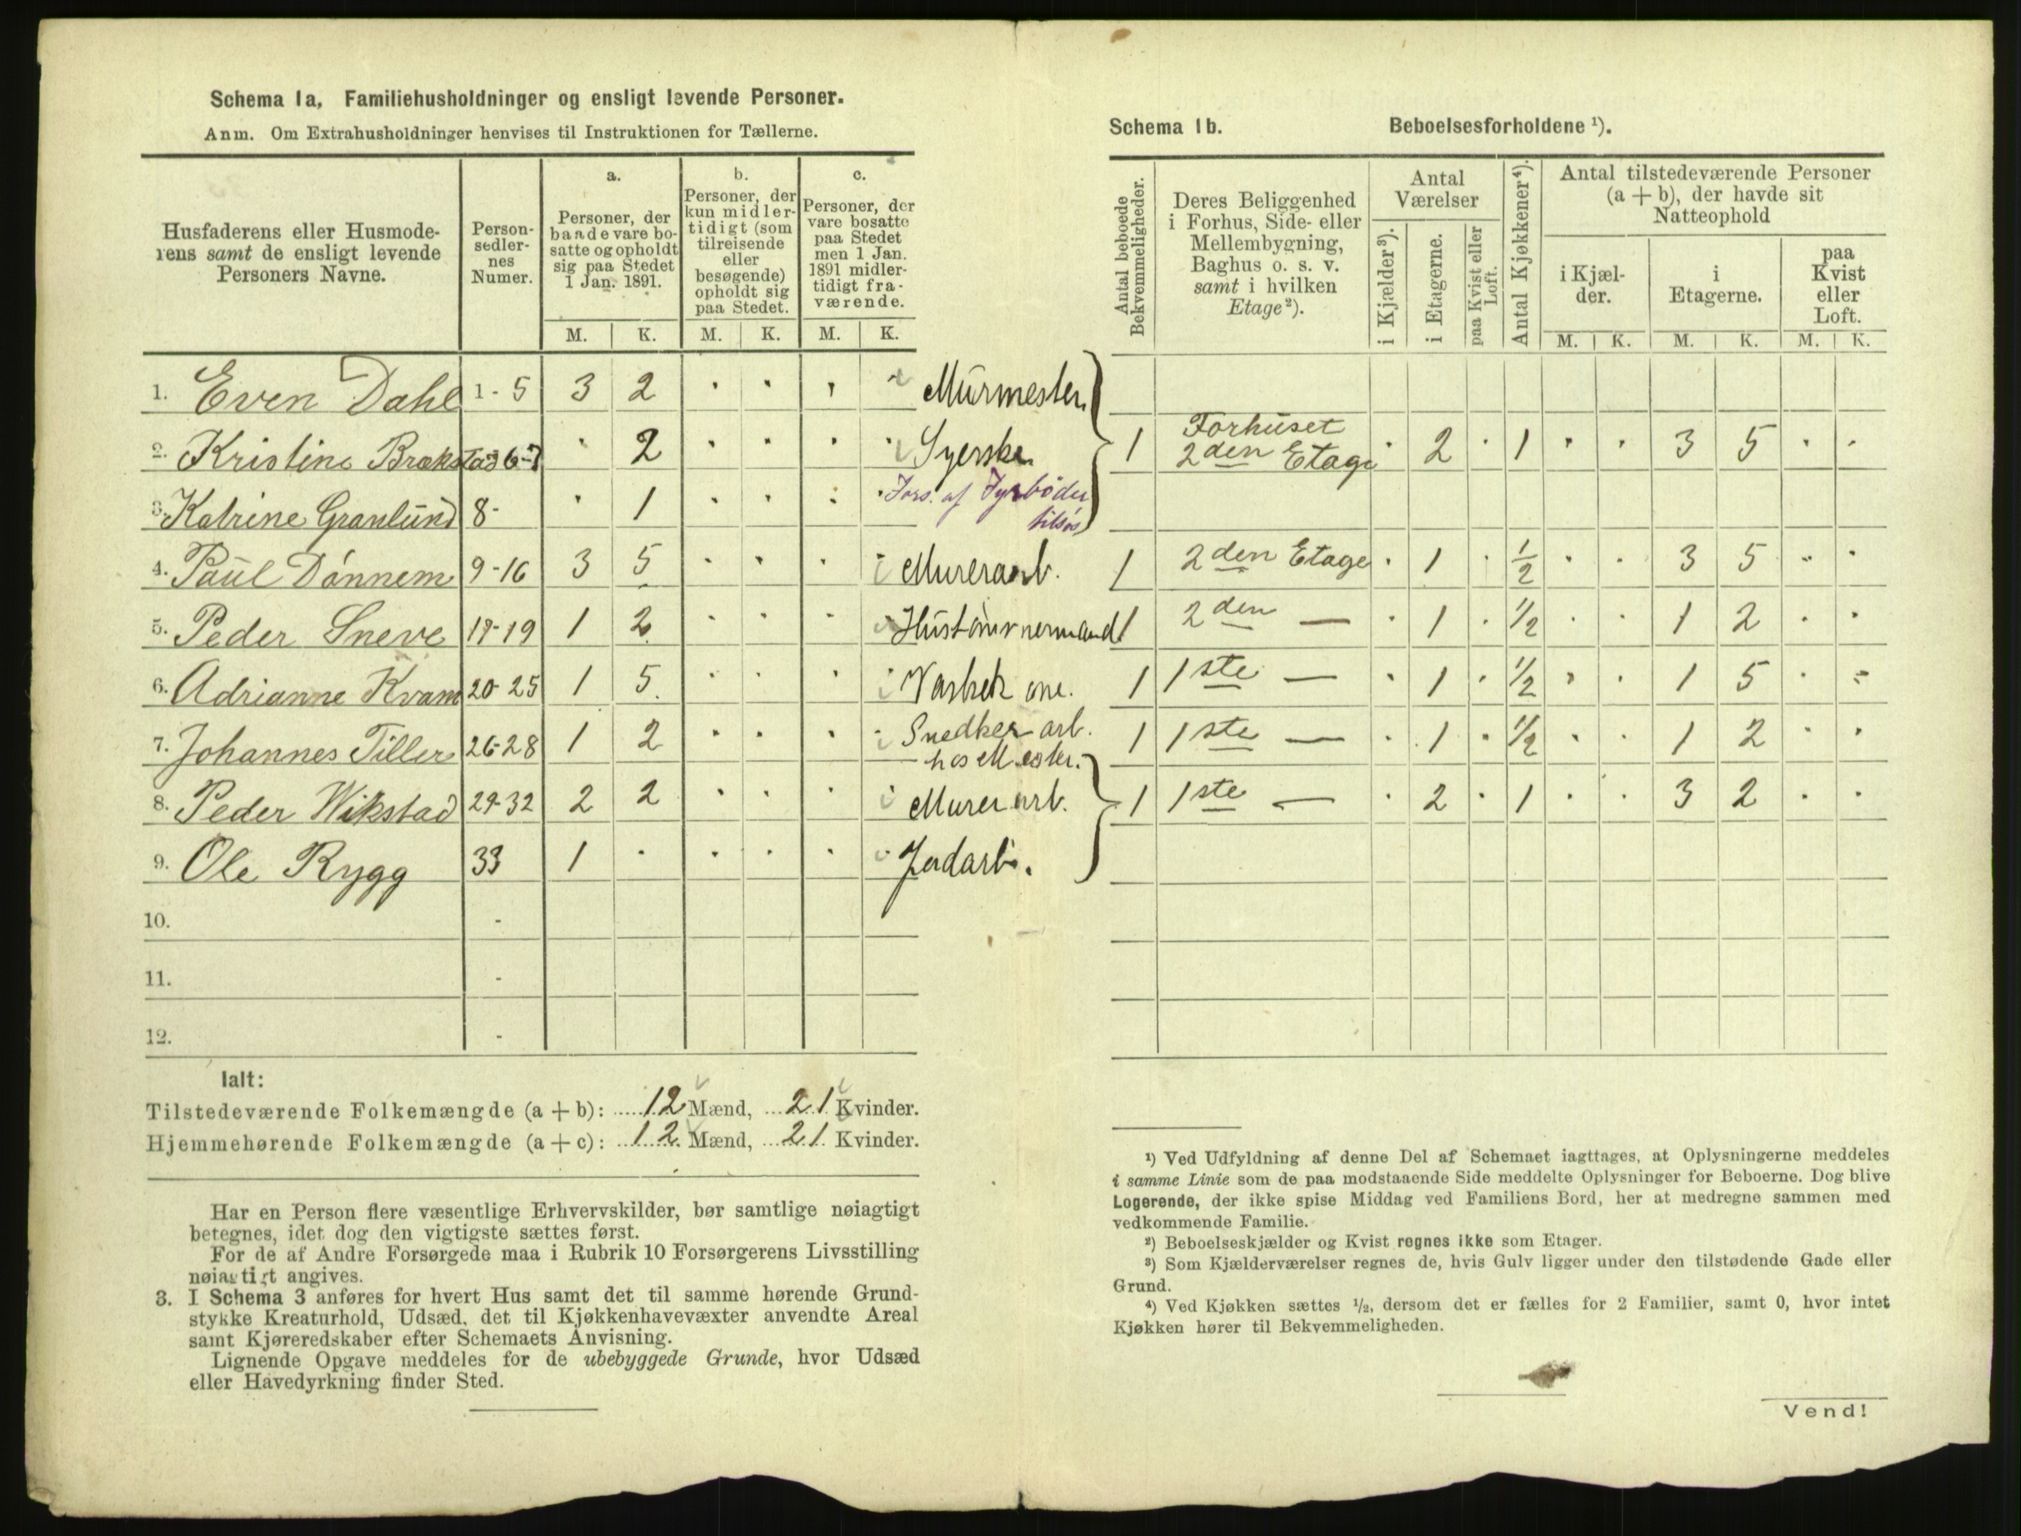 Schema 1a, Familiehusholdninger og ensligt levende Personer.
Anm. Om Extrahusholdninger henvises til Instruktionen for Tællerne.
Husfaderens eller Husmode-
rens samt de ensligt levende
Personers Navne.
Person-
sedler-
nes
Numer.
a.
Personer, der
baade vare bo-
satte og opholdt
sig paa Stedet
1 Jan. 1891.
b.
Personer, der
kun midler-
tidigt (som
tilreisende
eller
besøgende)
opholdt sig
paa Stedet.
c.
Personer, der
vare bosatte
paa Stedet
men 1 Jan.
1891 midler-
tidigt fra-
værende.
M. K. M. K. M. K.
1. Even Dahl 1-5 3 2 · · · · Murmester
2. Kristine Brækstad 6-7 · 2 · · · · Syerske
3. Katrine Granlund 8- · 1 · · · · Fors. af Fyrbøder
tilsøs
4. Paul Dønnem 9-16 3 5 · · · Murerarb.
5. Peder Sneve 17-19 1 2 · · · Hustømmermand
6. Adrianne Kvam 20-25 1 5 · · · Vaskekone.
7. Johannes Tiller 26-28 1 2 · · · · Snedker arb.
hos Mester.
8. Peder Wikstad 29-32 2 2 · · · Murer arb.
9. Ole Rygg 33 1 · · · · · Jordarb.
10. -
11. -
12. -
Ialt:
Tilstedeværende Folkemængde (a + b): 12 Mænd, 21 Kvinder.
Hjemmehørende Folkemængde (a + c): 12 Mænd, 21 Kvinder.
Har en Person flere væsentlige Erhvervskilder, bør samtlige nøiagtigt
betegnes, idet dog den vigtigste sættes først.
For de af Andre Forsørgede maa i Rubrik 10 Forsørgerens Livsstilling
nøiagtigt angives.
3. I Schema 3 anføres for hvert Hus samt det til samme hørende Grund-
stykke Kreaturhold, Udsæd, det til Kjøkkenhavevæxter anvendte Areal
samt Kjøreredskaber efter Schemaets Anvisning.
Lignende Opgave meddeles for de ubebyggede Grunde, hvor Udsæd
eller Havedyrkning finder Sted.
Schema 1b. Beboelsesforholdene ¹).
Antal beboede
Bekvemmeligheder.
Deres Beliggenhed
i Forhus, Side- eller
Mellembygning,
Baghus o. s. v.
samt i hvilken
Etage²).
Antal
Værelser
i Kjælder³).
i Etagerne.
paa Kvist eller
Loft.
Antal Kjøkkener⁴).
Antal tilstedeværende Personer
(a + b), der havde sit
Natteophold
i Kjæl-
der.
i
Etagerne.
paa
Kvist
eller
Loft.
M. K. M. K. M. K.
1 Forhuset
2den Etage · 2 · 1 · · 3 5 · ·
1 2den Etage · 1 · ½ · · 3 5 · ·
1 2den — · 1 · ½ · · 1 2 · ·
1 1ste — · 1 · ½ · · 1 5 · ·
1 1ste — · 1 · ½ · · 1 2 · ·
1 1ste — · 2 · 1 · · 3 2 · ·
¹) Ved Udfyldning af denne Del af Schemaet iagttages, at Oplysningerne meddeles
i samme Linie som de paa modstaaende Side meddelte Oplysninger for Beboerne. Dog blive
Logerende, der ikke spise Middag ved Familiens Bord, her at medregne sammen med
vedkommende Familie.
²) Beboelseskjælder og Kvist regnes ikke som Etager.
³) Som Kjælderværelser regnes de, hvis Gulv ligger under den tilstødende Gade eller
Grund.
⁴) Ved Kjøkken sættes ½, dersom det er fælles for 2 Familier, samt 0, hvor intet
Kjøkken hører til Bekvemmeligheden.
Vend!